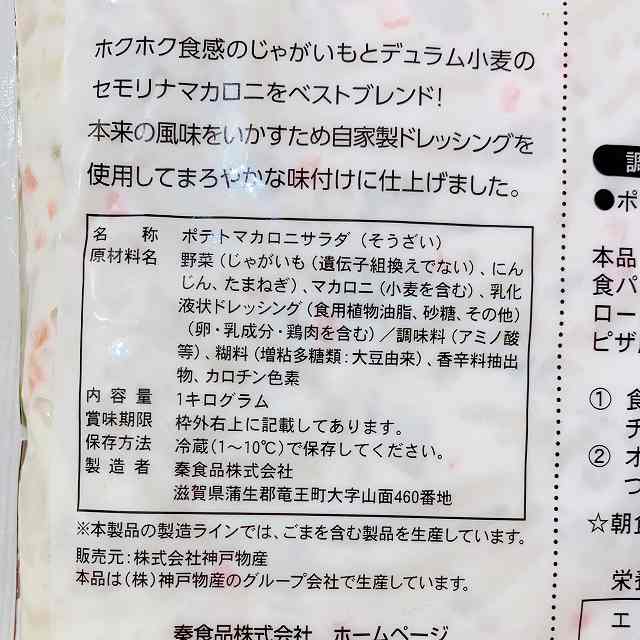 ホクホク食感のじゃがいもとデュラム小麦の
セモリナマカロニをベストブレンド!
本来の風味をいかすため自家製ドレッシングを
使用してまろやかな味付けに仕上げました。
名　　称　ポテトマカロニサラダ（そうざい）
原材料名　野菜（じゃがいも（遺伝子組換えでない）、にん
じん、たまねぎ）、マカロニ（小麦を含む）、乳化
液状ドレッシング（食用植物油脂、砂糖、その他）
（卵・乳成分・鶏肉を含む）／調味料（アミノ酸
等）、糊料（増粘多糖類：大豆由来）、香辛料抽出
物、カロチン色素
内 容 量　1キログラム
賞味期限　枠外右上に記載してあります。
保存方法　冷蔵（1～10℃）で保存してください。
製 造 者　秦食品株式会社
滋賀県蒲生郡竜王町大字山面460番地
※本製品の製造ラインでは、ごまを含む製品を生産しています。
販売元：株式会社神戸物産
本品は（株）神戸物産のグループ会社で生産しています。
秦食品株式会社　ホームページ
調
●ポ
本品
食パ
ロー
ピザ
① 食
チ
② オ
つ
☆朝食
栄養
エ